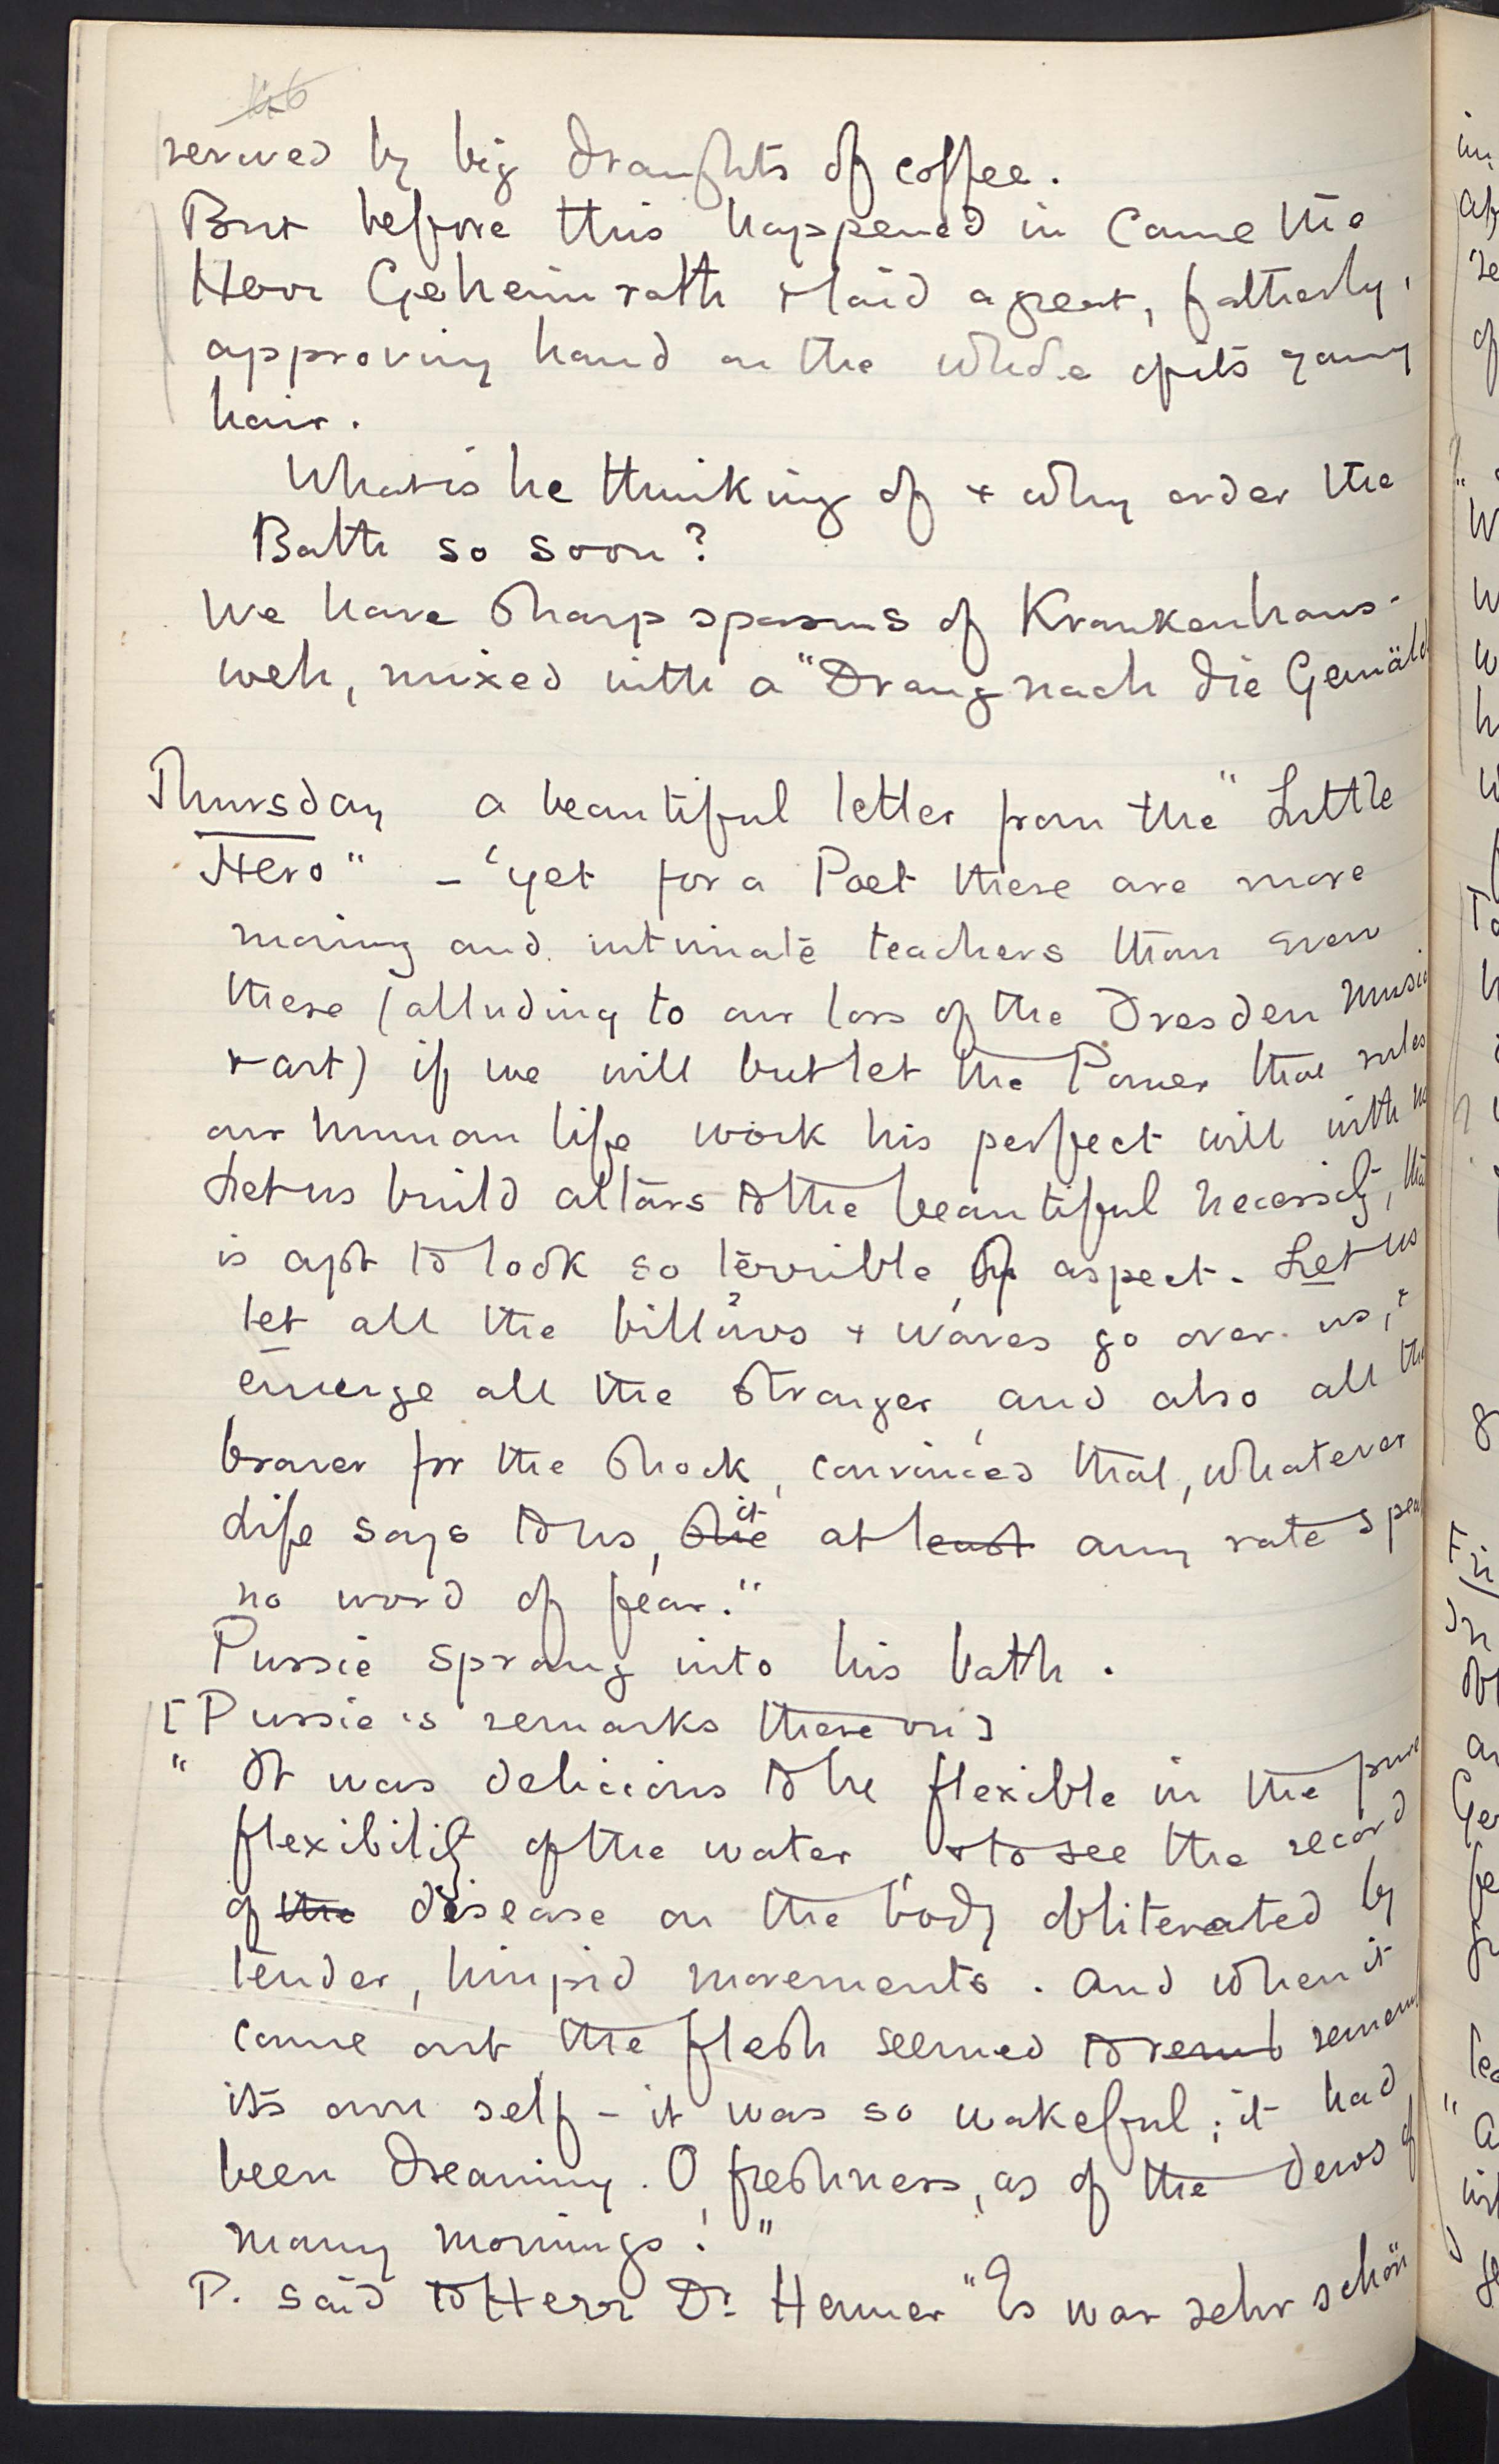 revived by big draughts of coffee.
But before this happened in came the
Herr Geheimrath & laid a great, fatherly,
approving hand on the whole of its young
hair.
What is he thinking of & why order the
Bath so soon?
We have sharp spasms of Krankenhaus-
weh, mixed with a "Drang nach die Gemäld
Thursday a beautiful letter from the "Little
Hero" – "yet for a Poet there are more
moving and intimate teachers than even
these (alluding to our loss of the Dresden Music
& art) if we will but let the Power that rules
our human life work his perfect will with us
Let us build altars to the beautiful necessity, that
is apt to look so terrible of aspect. Let us
let all the billows & waves go over us, &
emerge all the stronger, and also all the
braver for the shock, convinced that, whatever
Life says to us, she it at least any rate spea
no word of fear."
Pussie sprang into his bath.
[Pussie's remarks thereon]
" It was delicious to be flexible in the pure
flexibility of the water, & to see the record
of the disease on the body obliterated by
tender, limpid movements. And when it
came out the flesh seemed to remb remem
its own self – it was so wakeful; it had
been dreaming. O freshness, as of the dews of
many mornings! "
P. said to Herr Dr. Hermer "Es war sehr schön